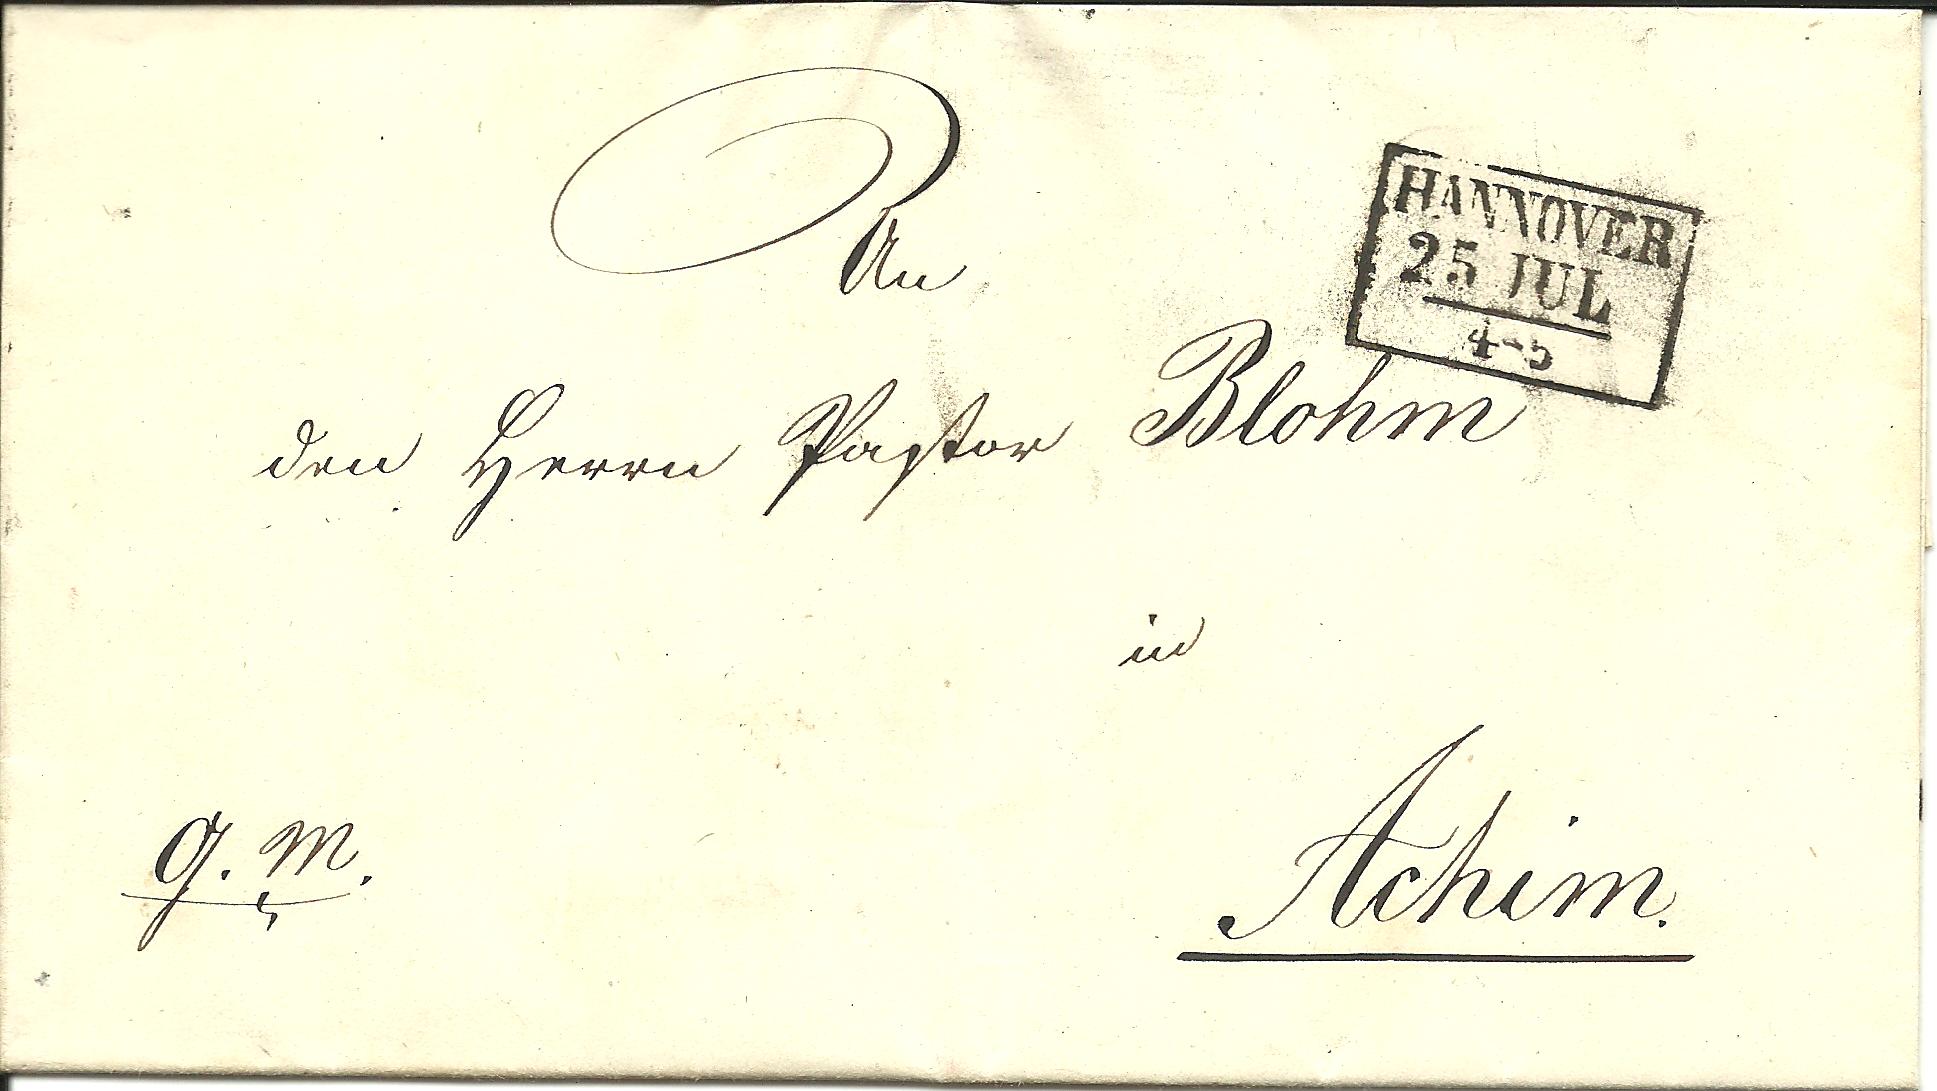 HANNOVER
25 JUL
4-5
An
den Herrn Pastor Blohm
in
Achim.
g. M.